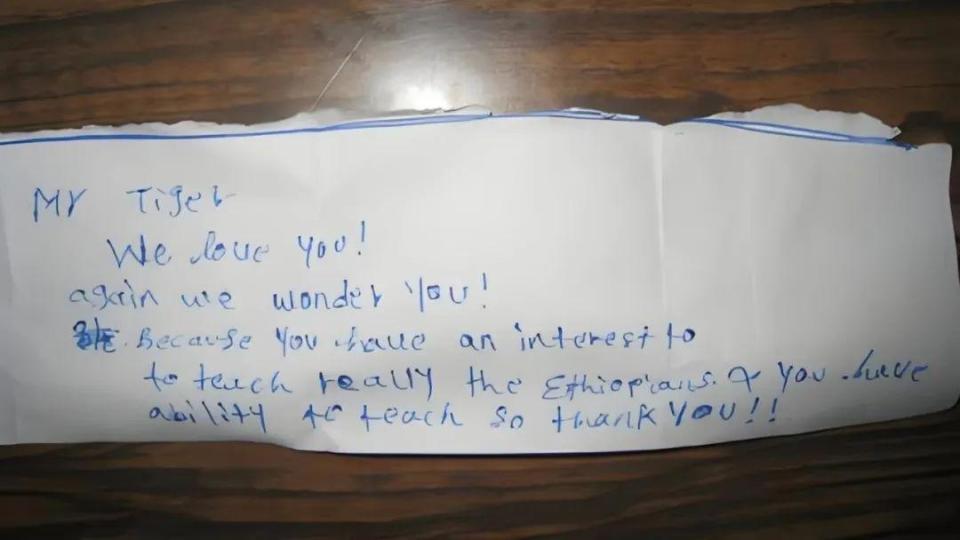 Mr Tiger
We love you!
again we wonder you!
Because you have an interest to
to teach really the Ethiopians. & you have
ability to teach so thank you!!